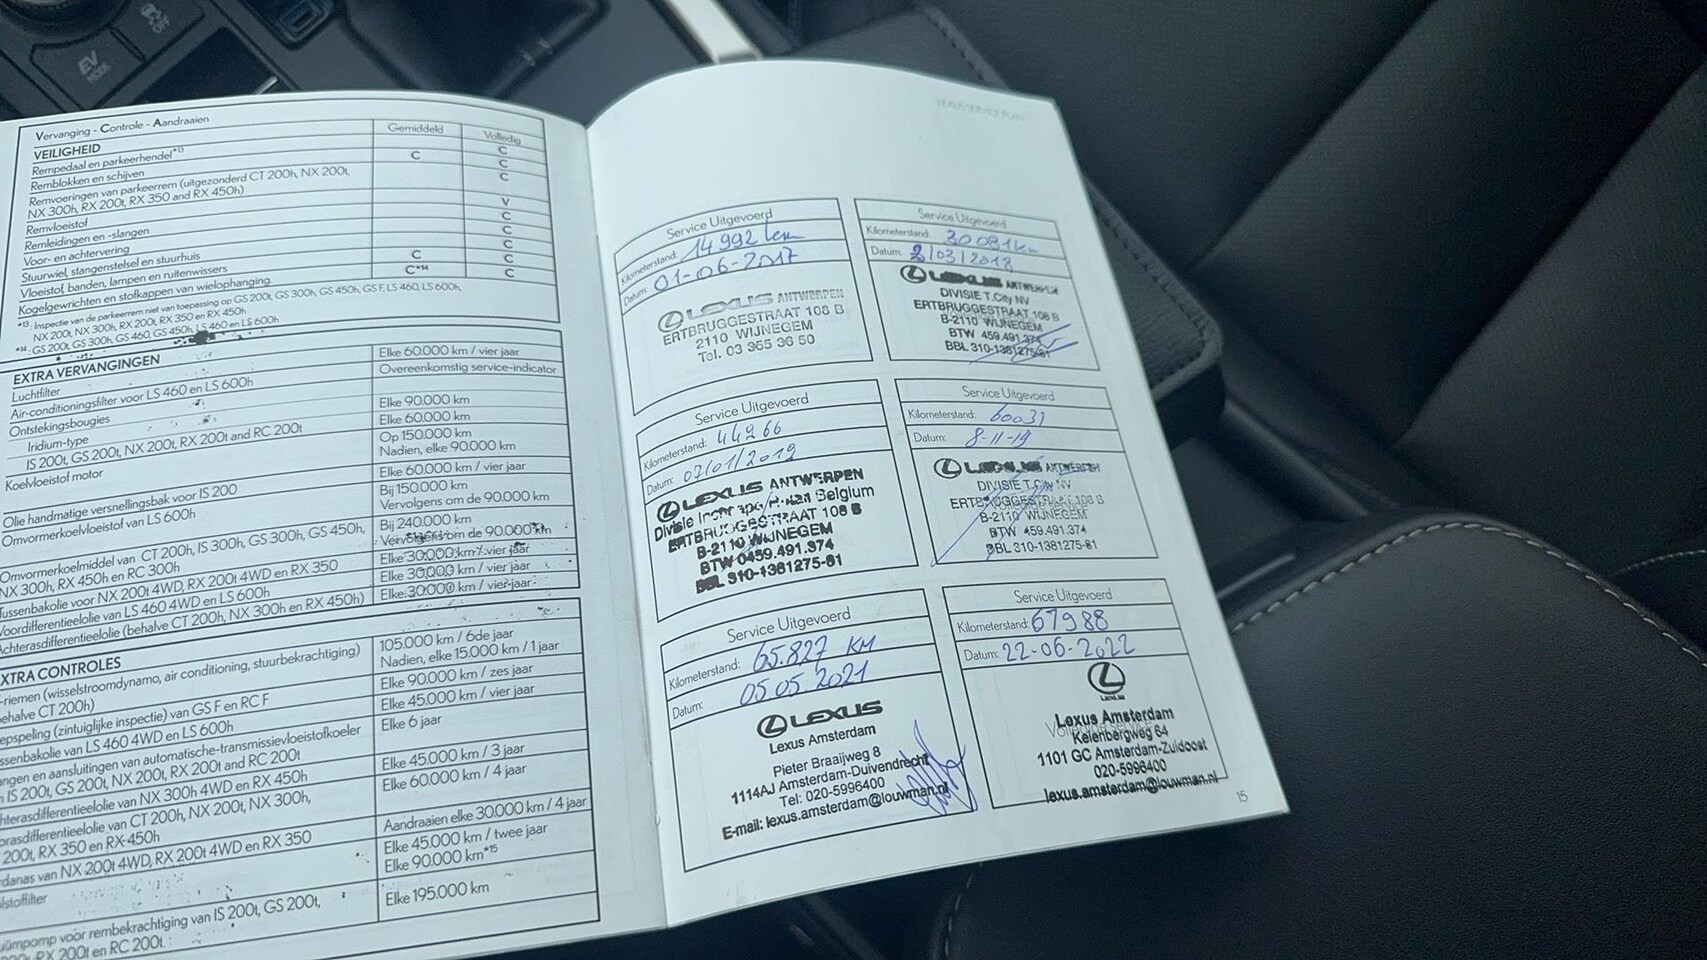 EV
MODE
OFF
Vervanging - Controle - Aandraaien
Gemiddeld
Volledig
VEILIGHEID
Rempedaal en parkeerhendel*13
C
Remblokken en schijven
C
C
Remvoeringen van parkeerrem (uitgezonderd CT 200h, NX 200t,
NX 300h, RX 200t, RX 350 and RX 450h)
C
Remvloeistof
V
Remleidingen en -slangen
C
Voor- en achtervering
C
Stuurwiel, stangenstelsel en stuurhuis
C
Vloeistof, banden, lampen en ruitenwissers
C
C
Kogelgewrichten en stofkappen van wielophanging
C*14
C
*13 : Inspectie van de parkeerrem niet van toepassing op GS 200t, GS 300h, GS 450h, GS F, LS 460, LS 600h,
NX 200t, NX 300h, RX 200t, RX 350 en RX 450h
*14 : GS 200t, GS 300h, GS 460, GS 450h, LS 460 en LS 600h
EXTRA VERVANGINGEN
Luchtfilter
Elke 60.000 km / vier jaar
Air-conditioningsfilter voor LS 460 en LS 600h
Overeenkomstig service-indicator
Ontstekingsbougies
Iridium-type
Elke 90.000 km
IS 200t, GS 200t, NX 200t, RX 200t and RC 200t
Elke 60.000 km
Koelvloeistof motor
Op 150.000 km
Nadien, elke 90.000 km
Olie handmatige versnellingsbak voor IS 200
Elke 60.000 km / vier jaar
Omvormerkoelvloeistof van LS 600h
Bij 150.000 km
Vervolgens om de 90.000 km
Omvormerkoelmiddel van CT 200h, IS 300h, GS 300h, GS 450h,
NX 300h, RX 450h en RC 300h
Bij 240.000 km
Vervolgens om de 90.000 km
Tussenbakolie voor NX 200t 4WD, RX 200t 4WD en RX 350
Elke 30.000 km / vier jaar
Voordifferentieelolie van LS 460 4WD en LS 600h
Elke 30.000 km / vier jaar
Achterasdifferentieelolie (behalve CT 200h, NX 300h en RX 450h)
Elke 30.000 km / vier jaar
XTRA CONTROLES
-riemen (wisselstroomdynamo, air conditioning, stuurbekrachtiging)
ehalve CT 200h)
105.000 km / 6de jaar
Nadien, elke 15.000 km / 1 jaar
epspeling (zintuiglijke inspectie) van GS F en RC F
Elke 90.000 km / zes jaar
ssenbakolie van LS 460 4WD en LS 600h
Elke 45.000 km / vier jaar
ngen en aansluitingen van automatische-transmissievloeistofkoeler
IS 200t, GS 200t, NX 200t, RX 200t and RC 200t
Elke 6 jaar
hterasdifferentieelolie van NX 300h 4WD en RX 450h
Elke 45.000 km / 3 jaar
orasdifferentieelolie van CT 200h, NX 200t, NX 300h,
200t, RX 350 en RX 450h
Elke 60.000 km / 4 jaar
rdanas van NX 200t 4WD, RX 200t 4WD en RX 350
Aandraaien elke 30.000 km / 4 jaar
lstoffilter
Elke 45.000 km / twee jaar
Elke 90.000 km*15
uümpomp voor rembekrachtiging van IS 200t, GS 200t,
200t, RX 200t en RC 200t
Elke 195.000 km
LEXUS SERVICE PLAN
Service Uitgevoerd
Kilometerstand: 14 992 km
Datum: 01-06-2017
LEXUS ANTWERPEN
ERTBRUGGESTRAAT 108 B
2110 WIJNEGEM
Tel. 03 355 36 50
Service Uitgevoerd
Kilometerstand: 30 081 km
Datum: 2/03/2018
LEXUS ANTWERPEN
DIVISIE T.City NV
ERTBRUGGESTRAAT 108 B
B-2110 WIJNEGEM
BTW 459.491.374
BBL 310-1381275-81
Service Uitgevoerd
Kilometerstand: 44266
Datum: 07/01/2019
LEXUS ANTWERPEN
Divisie Belgium
ERTBRUGGESTRAAT 108 B
B-2110 WIJNEGEM
BTW 0459.491.374
BBL 310-1381275-81
Service Uitgevoerd
Kilometerstand: 60031
Datum: 8-11-19
LEXUS ANTWERPEN
DIVISIE T.City NV
ERTBRUGGESTRAAT 108 B
B-2110 WIJNEGEM
BTW 459.491.374
BBL 310-1381275-81
Service Uitgevoerd
Kilometerstand: 65.827 KM
Datum: 05 05 2021
LEXUS
Lexus Amsterdam
Pieter Braaijweg 8
1114AJ Amsterdam-Duivendrecht
Tel: 020-5995400
E-mail: lexus.amsterdam@louwman.nl
Service Uitgevoerd
Kilometerstand: 67988
Datum: 22-06-2022
LEXUS
Lexus Amsterdam
Keienbergweg 64
1101 GC Amsterdam-Zuidoost
020-5996400
lexus.amsterdam@louwman.nl
15